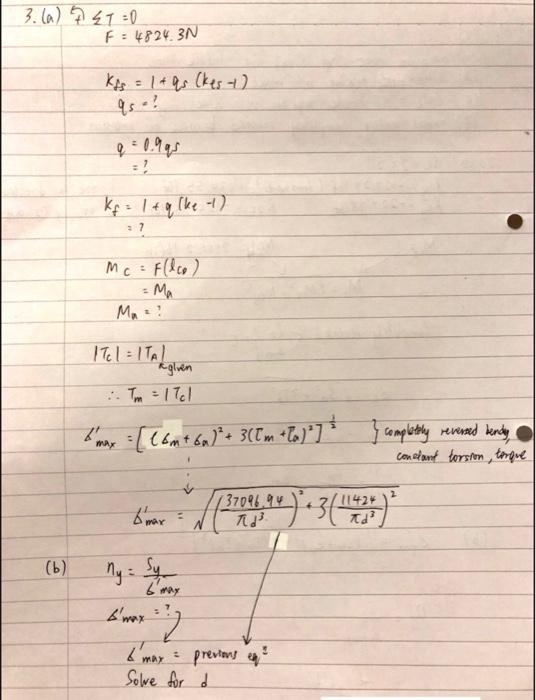 3. (a) ↺+ ΣT = 0
F = 4824.3N
kfs = 1 + qs (kts -1)
qs = ?
q = 0.9qs
= ?
kf = 1 + q (kt -1)
= ?
Mc = F(lCD)
= Ma
Ma = ?
|Tc| = |TA|
given
∴ Tm = |Tc|
σ'max = [ (σm + σa)² + 3(τm + τa)² ]^½ } completely reversed bending
constant torsion, torque
σ'max = √((37096.94/πd³)² + 3(11424/πd³)²)
(b) ny = Sy/σ'max
σ'max = ?
σ'max = previous eqⁿ
Solve for d